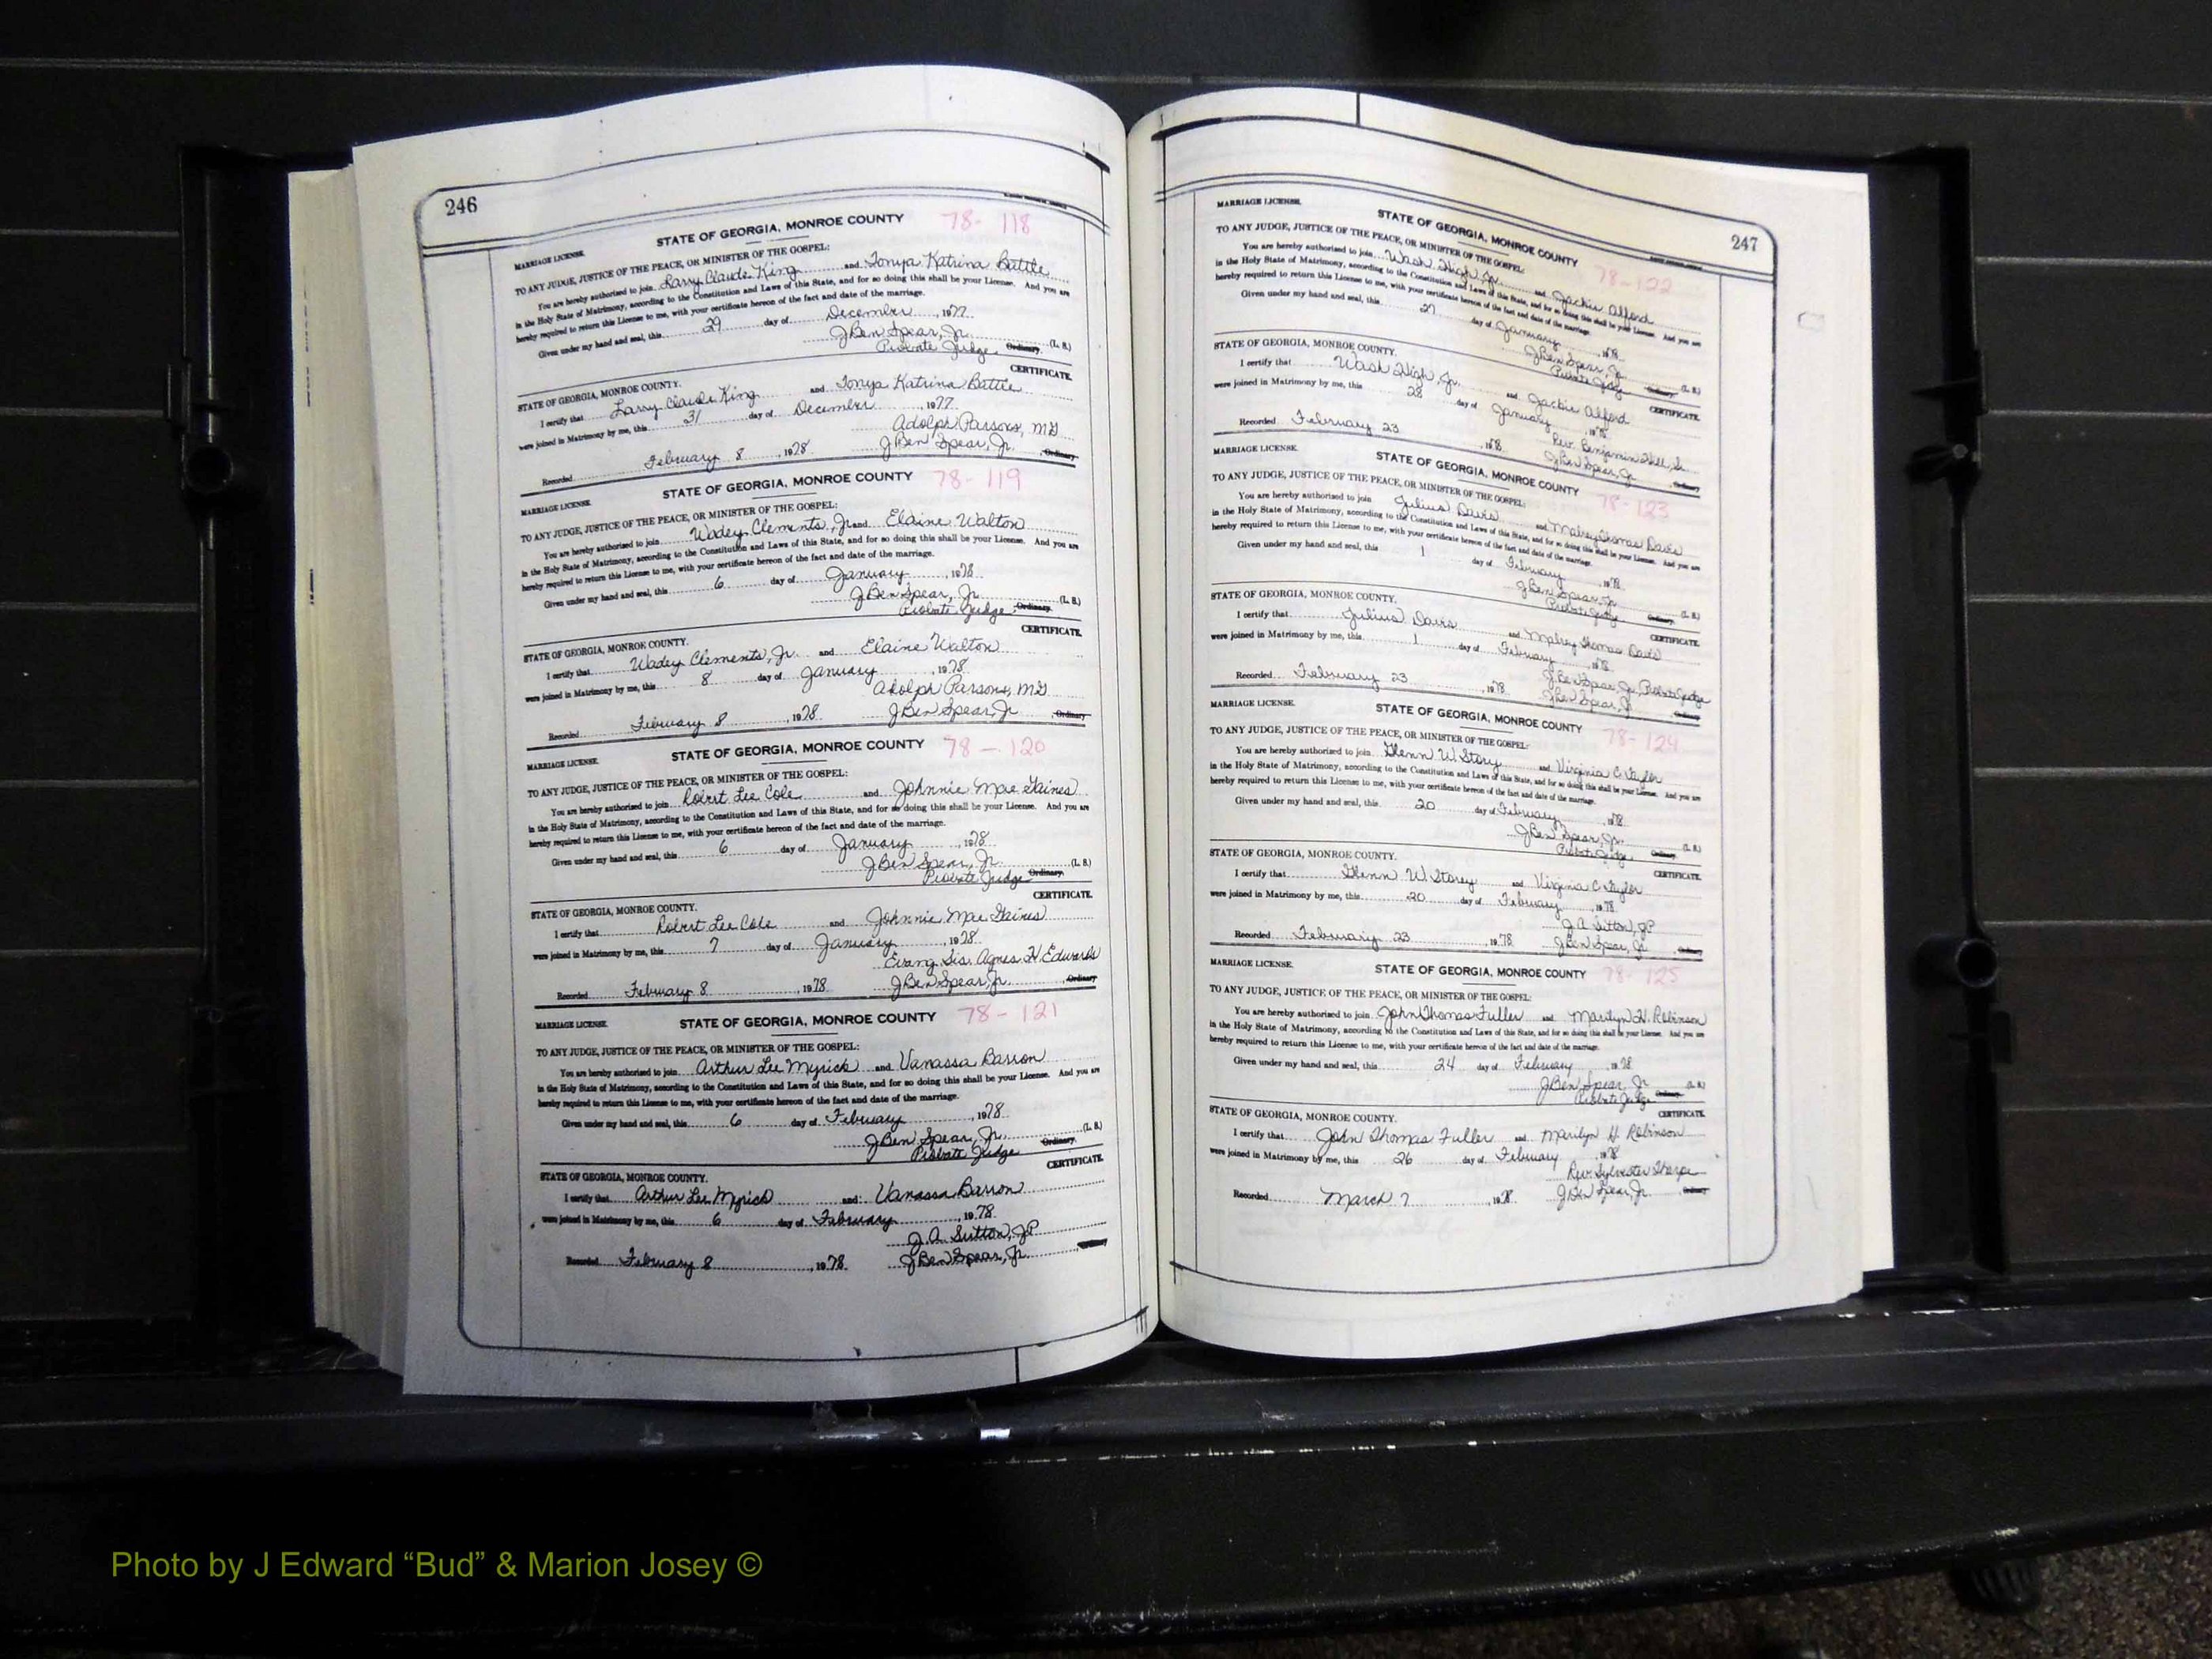 246
STATE OF GEORGIA, MONROE COUNTY 78-118
MARRIAGE LICENSE.
TO ANY JUDGE, JUSTICE OF THE PEACE, OR MINISTER OF THE GOSPEL:
You are hereby authorized to join Larry Claude King and Tonya Katrina Battle
in the Holy State of Matrimony, according to the Constitution and Laws of this State, and for so doing this shall be your License. And you are
hereby required to return this License to me, with your certificate hereon of the fact and date of the marriage.
Given under my hand and seal, this 29 day of December, 1977
J Ben Spear, Jr. (L. S.)
Probate Judge Ordinary.
CERTIFICATE.
STATE OF GEORGIA, MONROE COUNTY.
I certify that Larry Claude King and Tonya Katrina Battle
were joined in Matrimony by me, this 31 day of December, 1977
Adolph Parsons, MG
Recorded February 8, 1978 J Ben Spear, Jr., Ordinary
STATE OF GEORGIA, MONROE COUNTY 78-119
MARRIAGE LICENSE.
TO ANY JUDGE, JUSTICE OF THE PEACE, OR MINISTER OF THE GOSPEL:
You are hereby authorized to join Wadey Clements, Jr and Elaine Walton
in the Holy State of Matrimony, according to the Constitution and Laws of this State, and for so doing this shall be your License. And you are
hereby required to return this License to me, with your certificate hereon of the fact and date of the marriage.
Given under my hand and seal, this 6 day of January, 1978
J Ben Spear, Jr. (L. S.)
Probate Judge Ordinary.
CERTIFICATE.
STATE OF GEORGIA, MONROE COUNTY.
I certify that Wadey Clements, Jr. and Elaine Walton
were joined in Matrimony by me, this 8 day of January, 1978
Adolph Parsons, MG
Recorded February 8, 1978 J Ben Spear, Jr, Ordinary
STATE OF GEORGIA, MONROE COUNTY 78-120
MARRIAGE LICENSE.
TO ANY JUDGE, JUSTICE OF THE PEACE, OR MINISTER OF THE GOSPEL:
You are hereby authorized to join Robert Lee Cole and Johnnie Mae Gaines
in the Holy State of Matrimony, according to the Constitution and Laws of this State, and for so doing this shall be your License. And you are
hereby required to return this License to me, with your certificate hereon of the fact and date of the marriage.
Given under my hand and seal, this 6 day of January, 1978
J Ben Spear, Jr. (L. S.)
Probate Judge Ordinary.
CERTIFICATE.
STATE OF GEORGIA, MONROE COUNTY.
I certify that Robert Lee Cole and Johnnie Mae Gaines
were joined in Matrimony by me, this 7 day of January, 1978
Evang. Sis. Agnes H. Edwards
Recorded February 8, 1978 J Ben Spear, Jr., Ordinary
MARRIAGE LICENSE. STATE OF GEORGIA, MONROE COUNTY 78-121
TO ANY JUDGE, JUSTICE OF THE PEACE, OR MINISTER OF THE GOSPEL:
You are hereby authorized to join Arthur Lee Myrick and Vanassa Barron
in the Holy State of Matrimony, according to the Constitution and Laws of this State, and for so doing this shall be your License. And you are
hereby required to return this License to me, with your certificate hereon of the fact and date of the marriage.
Given under my hand and seal, this 6 day of February, 1978
J Ben Spear, Jr. (L. S.)
Probate Judge Ordinary.
CERTIFICATE.
STATE OF GEORGIA, MONROE COUNTY.
I certify that Arthur Lee Myrick and Vanassa Barron
were joined in Matrimony by me, this 6 day of February, 1978
J. A. Sutton, JP
Recorded February 8, 1978 J Ben Spear, Jr.
247
MARRIAGE LICENSE.
STATE OF GEORGIA, MONROE COUNTY 78-122
TO ANY JUDGE, JUSTICE OF THE PEACE, OR MINISTER OF THE GOSPEL:
You are hereby authorized to join Wash High, Jr. and Jackie Alford
in the Holy State of Matrimony, according to the Constitution and Laws of this State, and for so doing this shall be your License. And you are
hereby required to return this License to me, with your certificate hereon of the fact and date of the marriage.
Given under my hand and seal, this 27 day of January, 1978
J Ben Spear, Jr (L. S.)
Probate Judge Ordinary.
STATE OF GEORGIA, MONROE COUNTY. CERTIFICATE.
I certify that Wash High, Jr. and Jackie Alford
were joined in Matrimony by me, this 28 day of January, 1978
Rev. Benjamin Hill, Sr.
Recorded February 23, 1978 J Ben Spear, Jr Ordinary
MARRIAGE LICENSE.
STATE OF GEORGIA, MONROE COUNTY 78-123
TO ANY JUDGE, JUSTICE OF THE PEACE, OR MINISTER OF THE GOSPEL:
You are hereby authorized to join Julius Davis and Malrey Thomas Davis
in the Holy State of Matrimony, according to the Constitution and Laws of this State, and for so doing this shall be your License. And you are
hereby required to return this License to me, with your certificate hereon of the fact and date of the marriage.
Given under my hand and seal, this 1 day of February, 1978
J Ben Spear, Jr (L. S.)
Probate Judge Ordinary.
STATE OF GEORGIA, MONROE COUNTY. CERTIFICATE.
I certify that Julius Davis and Malrey Thomas Davis
were joined in Matrimony by me, this 1 day of February, 1978
J Ben Spear, Jr, Probate Judge
Recorded February 23, 1978 J Ben Spear, Jr Ordinary
MARRIAGE LICENSE.
STATE OF GEORGIA, MONROE COUNTY 78-124
TO ANY JUDGE, JUSTICE OF THE PEACE, OR MINISTER OF THE GOSPEL:
You are hereby authorized to join Glenn W Story and Virginia C Taylor
in the Holy State of Matrimony, according to the Constitution and Laws of this State, and for so doing this shall be your License. And you are
hereby required to return this License to me, with your certificate hereon of the fact and date of the marriage.
Given under my hand and seal, this 20 day of February, 1978
J Ben Spear, Jr. (L. S.)
Probate Judge Ordinary.
STATE OF GEORGIA, MONROE COUNTY. CERTIFICATE.
I certify that Glenn W. Storey and Virginia C Taylor
were joined in Matrimony by me, this 20 day of February, 1978
J. A. Sutton, JP
Recorded February 23, 1978 J Ben Spear, Jr Ordinary
MARRIAGE LICENSE.
STATE OF GEORGIA, MONROE COUNTY 78-125
TO ANY JUDGE, JUSTICE OF THE PEACE, OR MINISTER OF THE GOSPEL:
You are hereby authorized to join John Thomas Fuller and Marilyn H. Robinson
in the Holy State of Matrimony, according to the Constitution and Laws of this State, and for so doing this shall be your License. And you are
hereby required to return this License to me, with your certificate hereon of the fact and date of the marriage.
Given under my hand and seal, this 24 day of February, 1978
J Ben Spear, Jr (L. S.)
Probate Judge Ordinary.
STATE OF GEORGIA, MONROE COUNTY. CERTIFICATE.
I certify that John Thomas Fuller and Marilyn H. Robinson
were joined in Matrimony by me, this 26 day of February, 1978
Rev. Sylvester Tharpe
Recorded March 7, 1978 J Ben Spear, Jr. Ordinary
Photo by J Edward “Bud” & Marion Josey ©